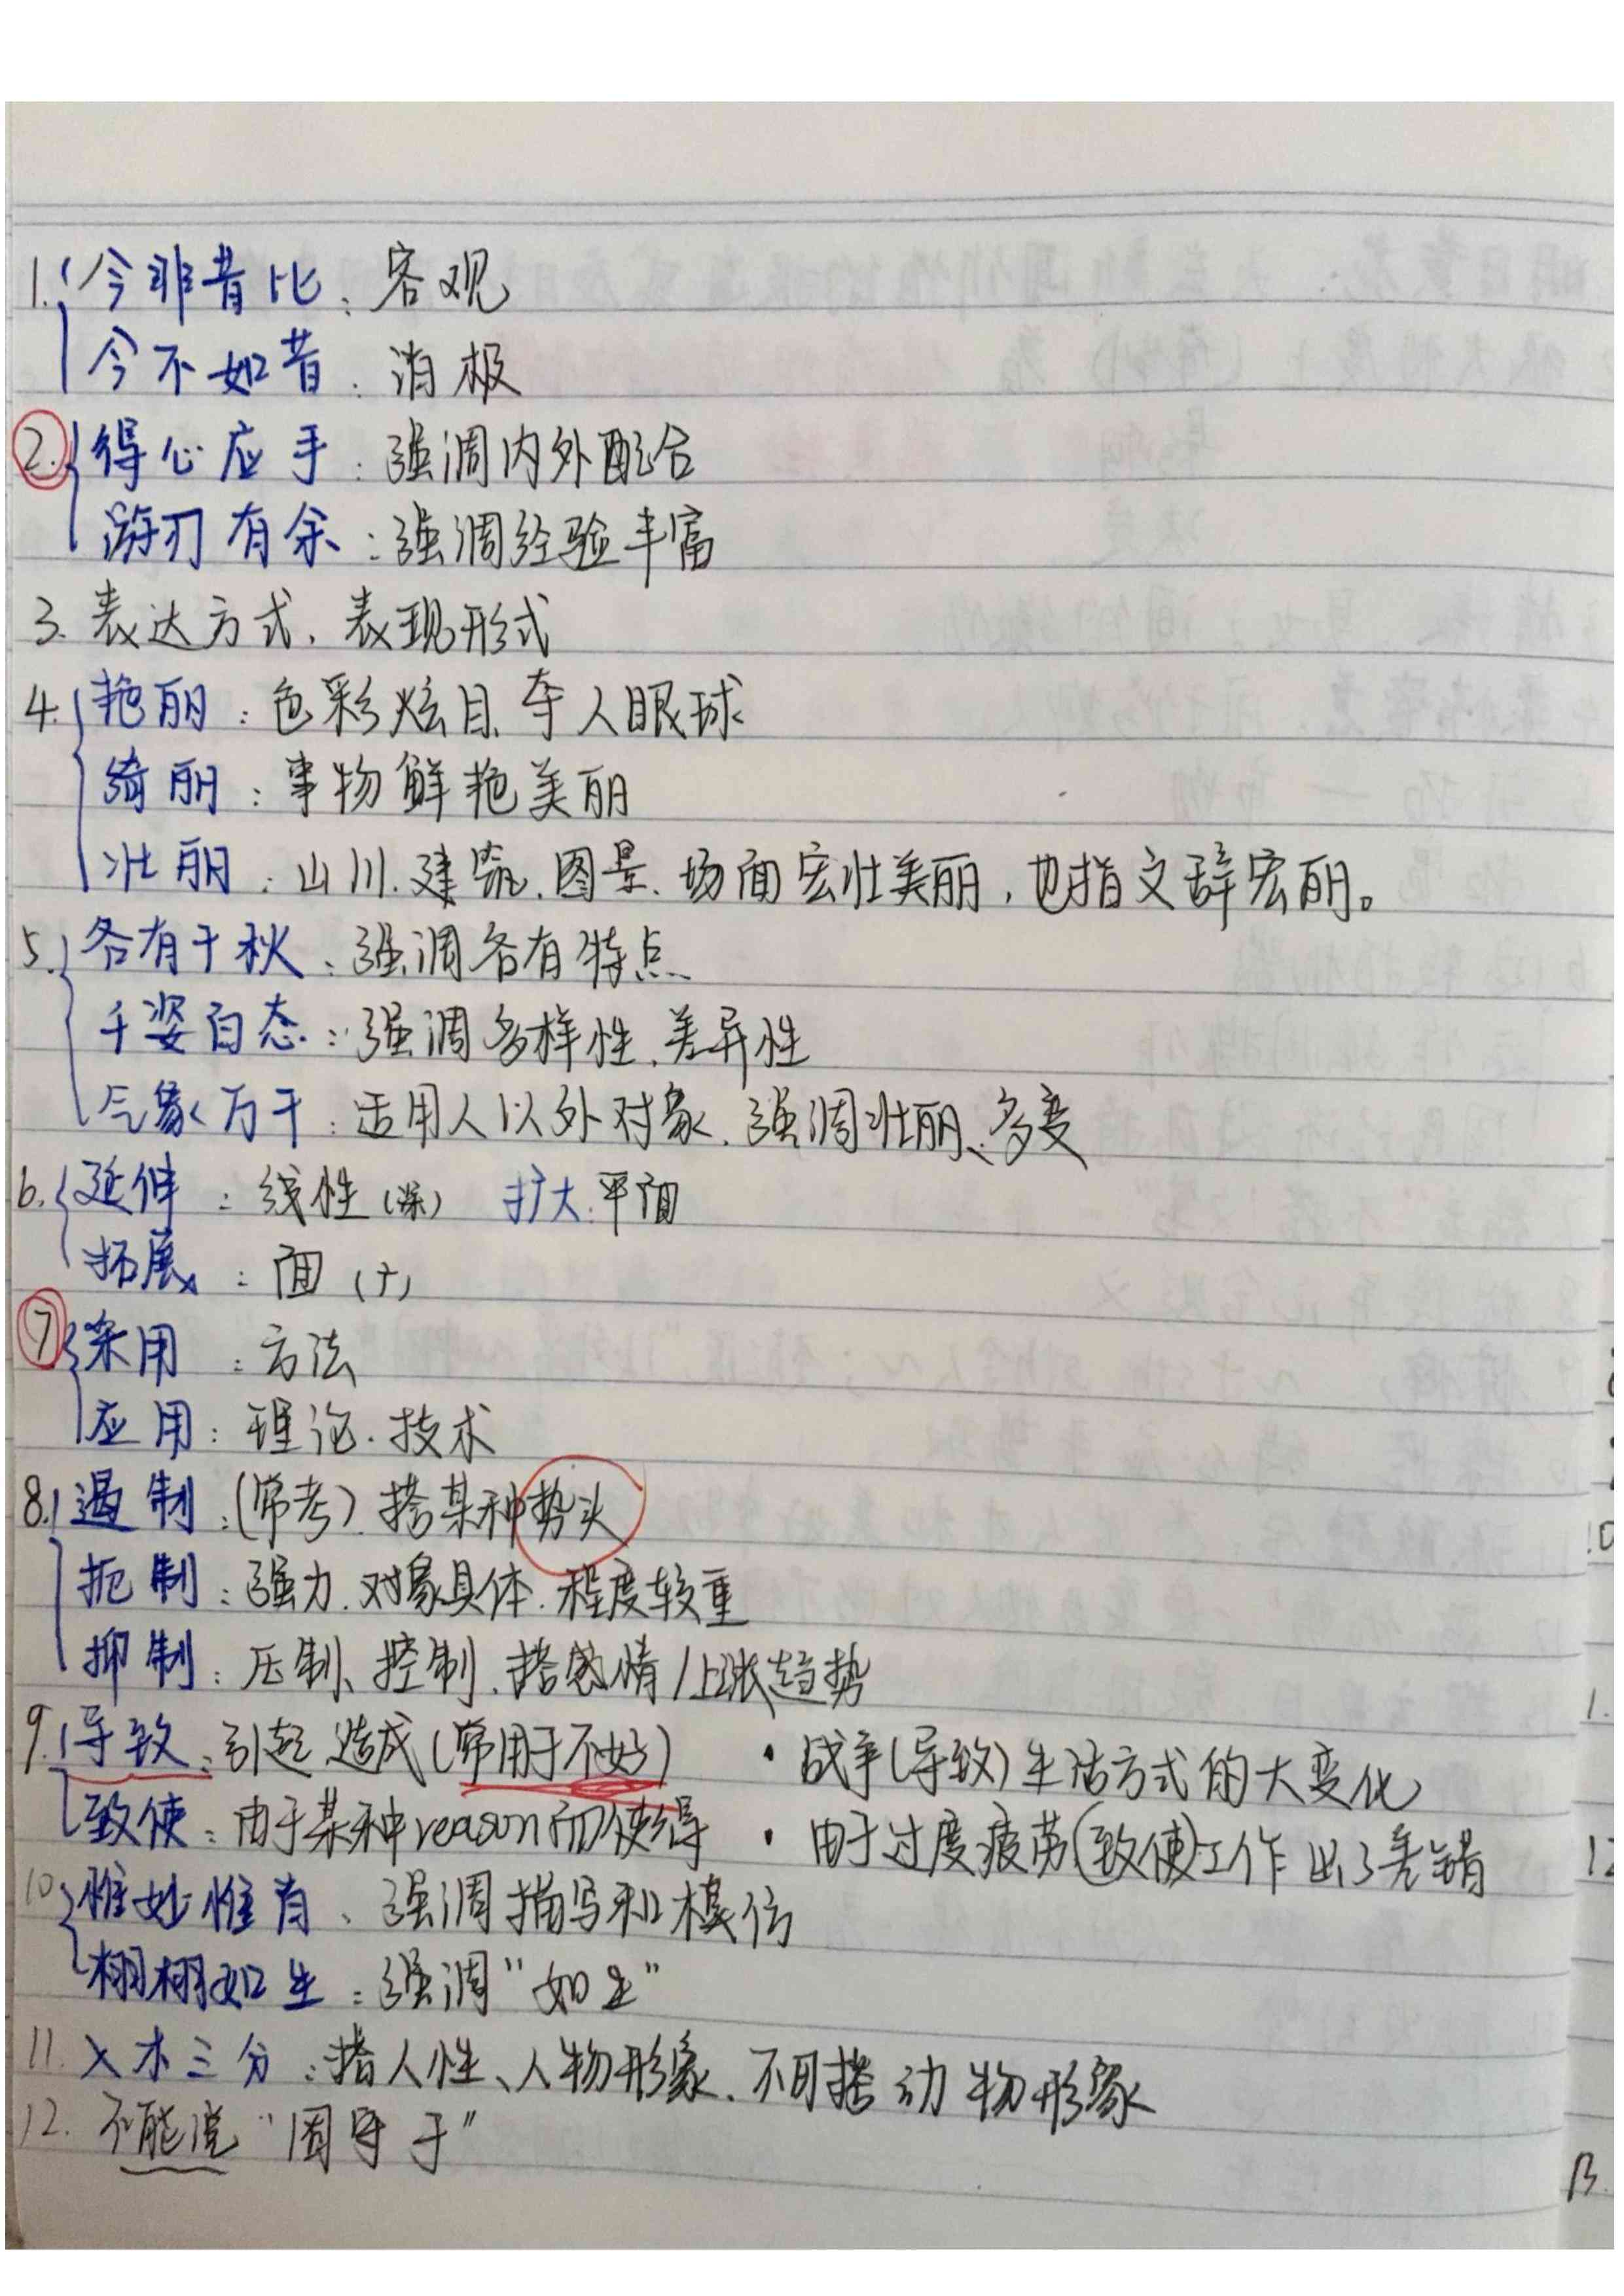 1. 今非昔比：客观
今不如昔：消极
2. 得心应手：强调内外配合
游刃有余：强调经验丰富
3. 表达方式、表现形式
4. 艳丽：色彩炫目、夺人眼球
绮丽：事物鲜艳美丽
壮丽：山川、建筑、图景、场面宏壮美丽，也指文辞宏丽。
5. 各有千秋：强调各有特点
千姿百态：强调多样性、差异性
气象万千：适用人以外对象、强调壮丽、多变
6. 延伸：线性（深） 扩大：平面
拓展：面（广）
7. 采用：方法
应用：理论、技术
8. 遏制：（常考）搭某种势头
扼制：强力、对象具体、程度较重
抑制：压制、控制、搭感情/上涨趋势
9. 导致：引起 造成（常用于不好） ·战争（导致）生活方式的大变化
致使：由于某种reason而使得 ·由于过度疲劳（致使）工作出了差错
10. 惟妙惟肖：强调描写和模仿
栩栩如生：强调“如生”
11. 入木三分：搭人性、人物形象、不可搭动物形象
12. 不能说“固守于”